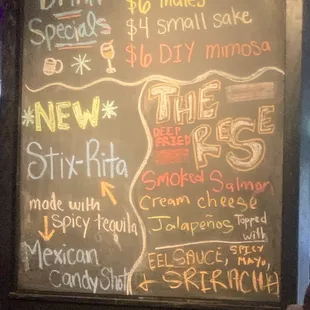 Drink
Specials
$6 mules
$4 small sake
$6 DIY mimosa
NEW
Stix-Rita
made with
spicy tequila
Mexican
Candy Shot
THE
DEEP
FRIED
ROSE
Smoked Salmon
Cream cheese
Jalapeños Topped
with
EEL SAUCE, SPICY
MAYO,
+ SRIRACHA